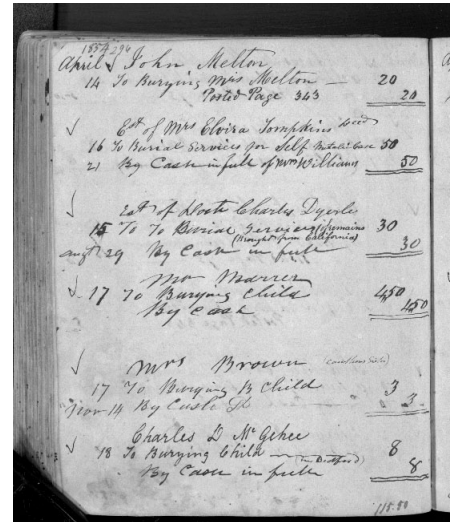 1854 296
April John Melton
14 To Burying Mrs Melton — 20
Posted Page 343 20
Est of Mrs Elvira Tompkins decd
16 To Burial Services for Self Metalic Case 50
21 By Cash in full of Wm Williams 50
Est of Doctr Charles Dyerle
15 To To Burial Services (remains 30
(Brought from California)
Augt 29 By Cash in full 30
Mr Marrer
17 To Burying Child 450
By Cash 450
Mrs Brown
17 To Burying B Child 3
Nov 14 By Cash 3
Charles D McGehee
18 To Burying Child — 8
By Cash in full 8
115.50